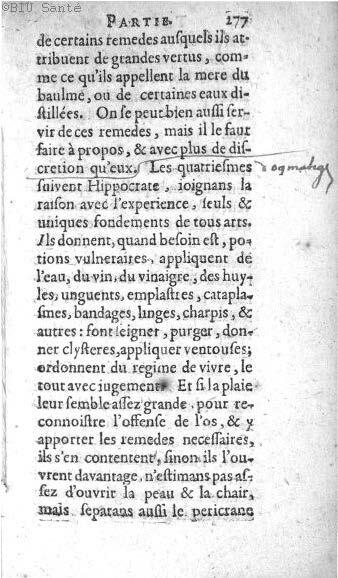 ©BIU Santé
PARTIE. 277
de certains remedes ausquels ils at-
tribuent de grandes vertus, com-
me ce qu'ils appellent la mere du
baulme, ou de certaines eaux di-
stillées. On se peut bien aussi ser-
vir de ces remedes, mais il le faut
faire à propos, & avec plus de dis-
cretion qu'eux. Les quatriesmes
suivent Hippocrate, ioignans la
raison avec l'experience, seuls &
uniques fondements de tous arts.
Ils donnent, quand besoin est, po-
tions vulneraires, appliquent de
l'eau, du vin, du vinaigre, des huy-
les, unguents, emplastres, catapla-
smes, bandages, linges, charpis, &
autres: font seigner, purger, don-
ner clysteres, appliquer ventouses;
ordonnent du regime de vivre, le
tout avec iugement. Et si la plaie
leur semble assez grande, pour re-
connoistre l'offense de l'os, & y
apporter les remedes necessaires,
ils s'en contentent, sinon ils l'ou-
vrent davantage, n'estimans pas as-
sez d'ouvrir la peau & la chair,
mais separans aussi le pericrane